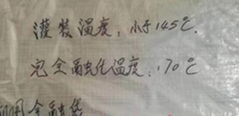 灌装温度,小于145℃.
完全融化温度:170℃
全融货